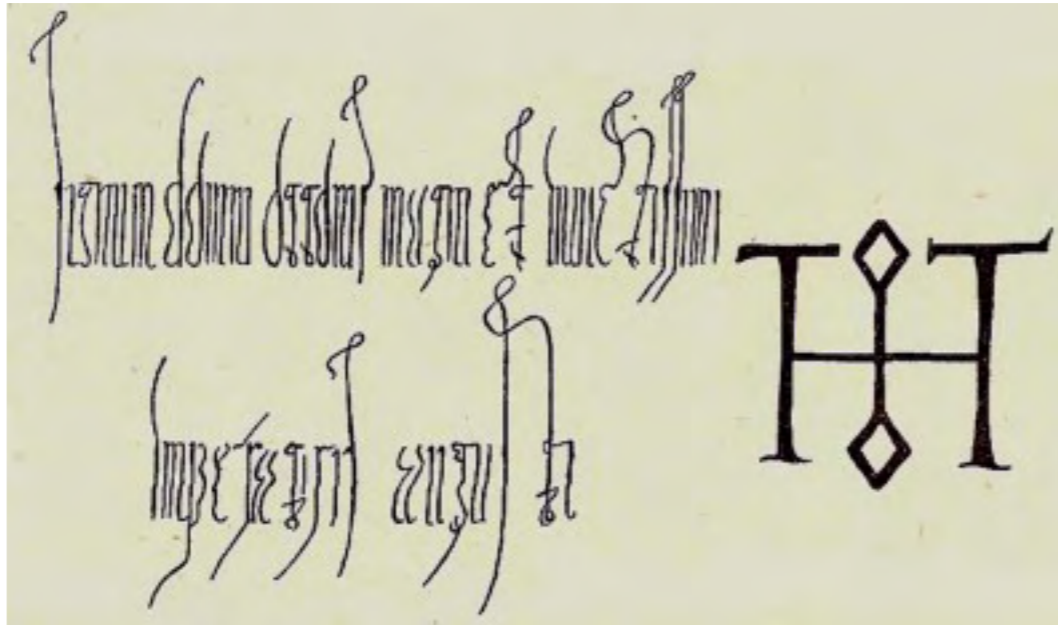 Signum domni ottonis magni et inuictissimi
imperatoris augusti